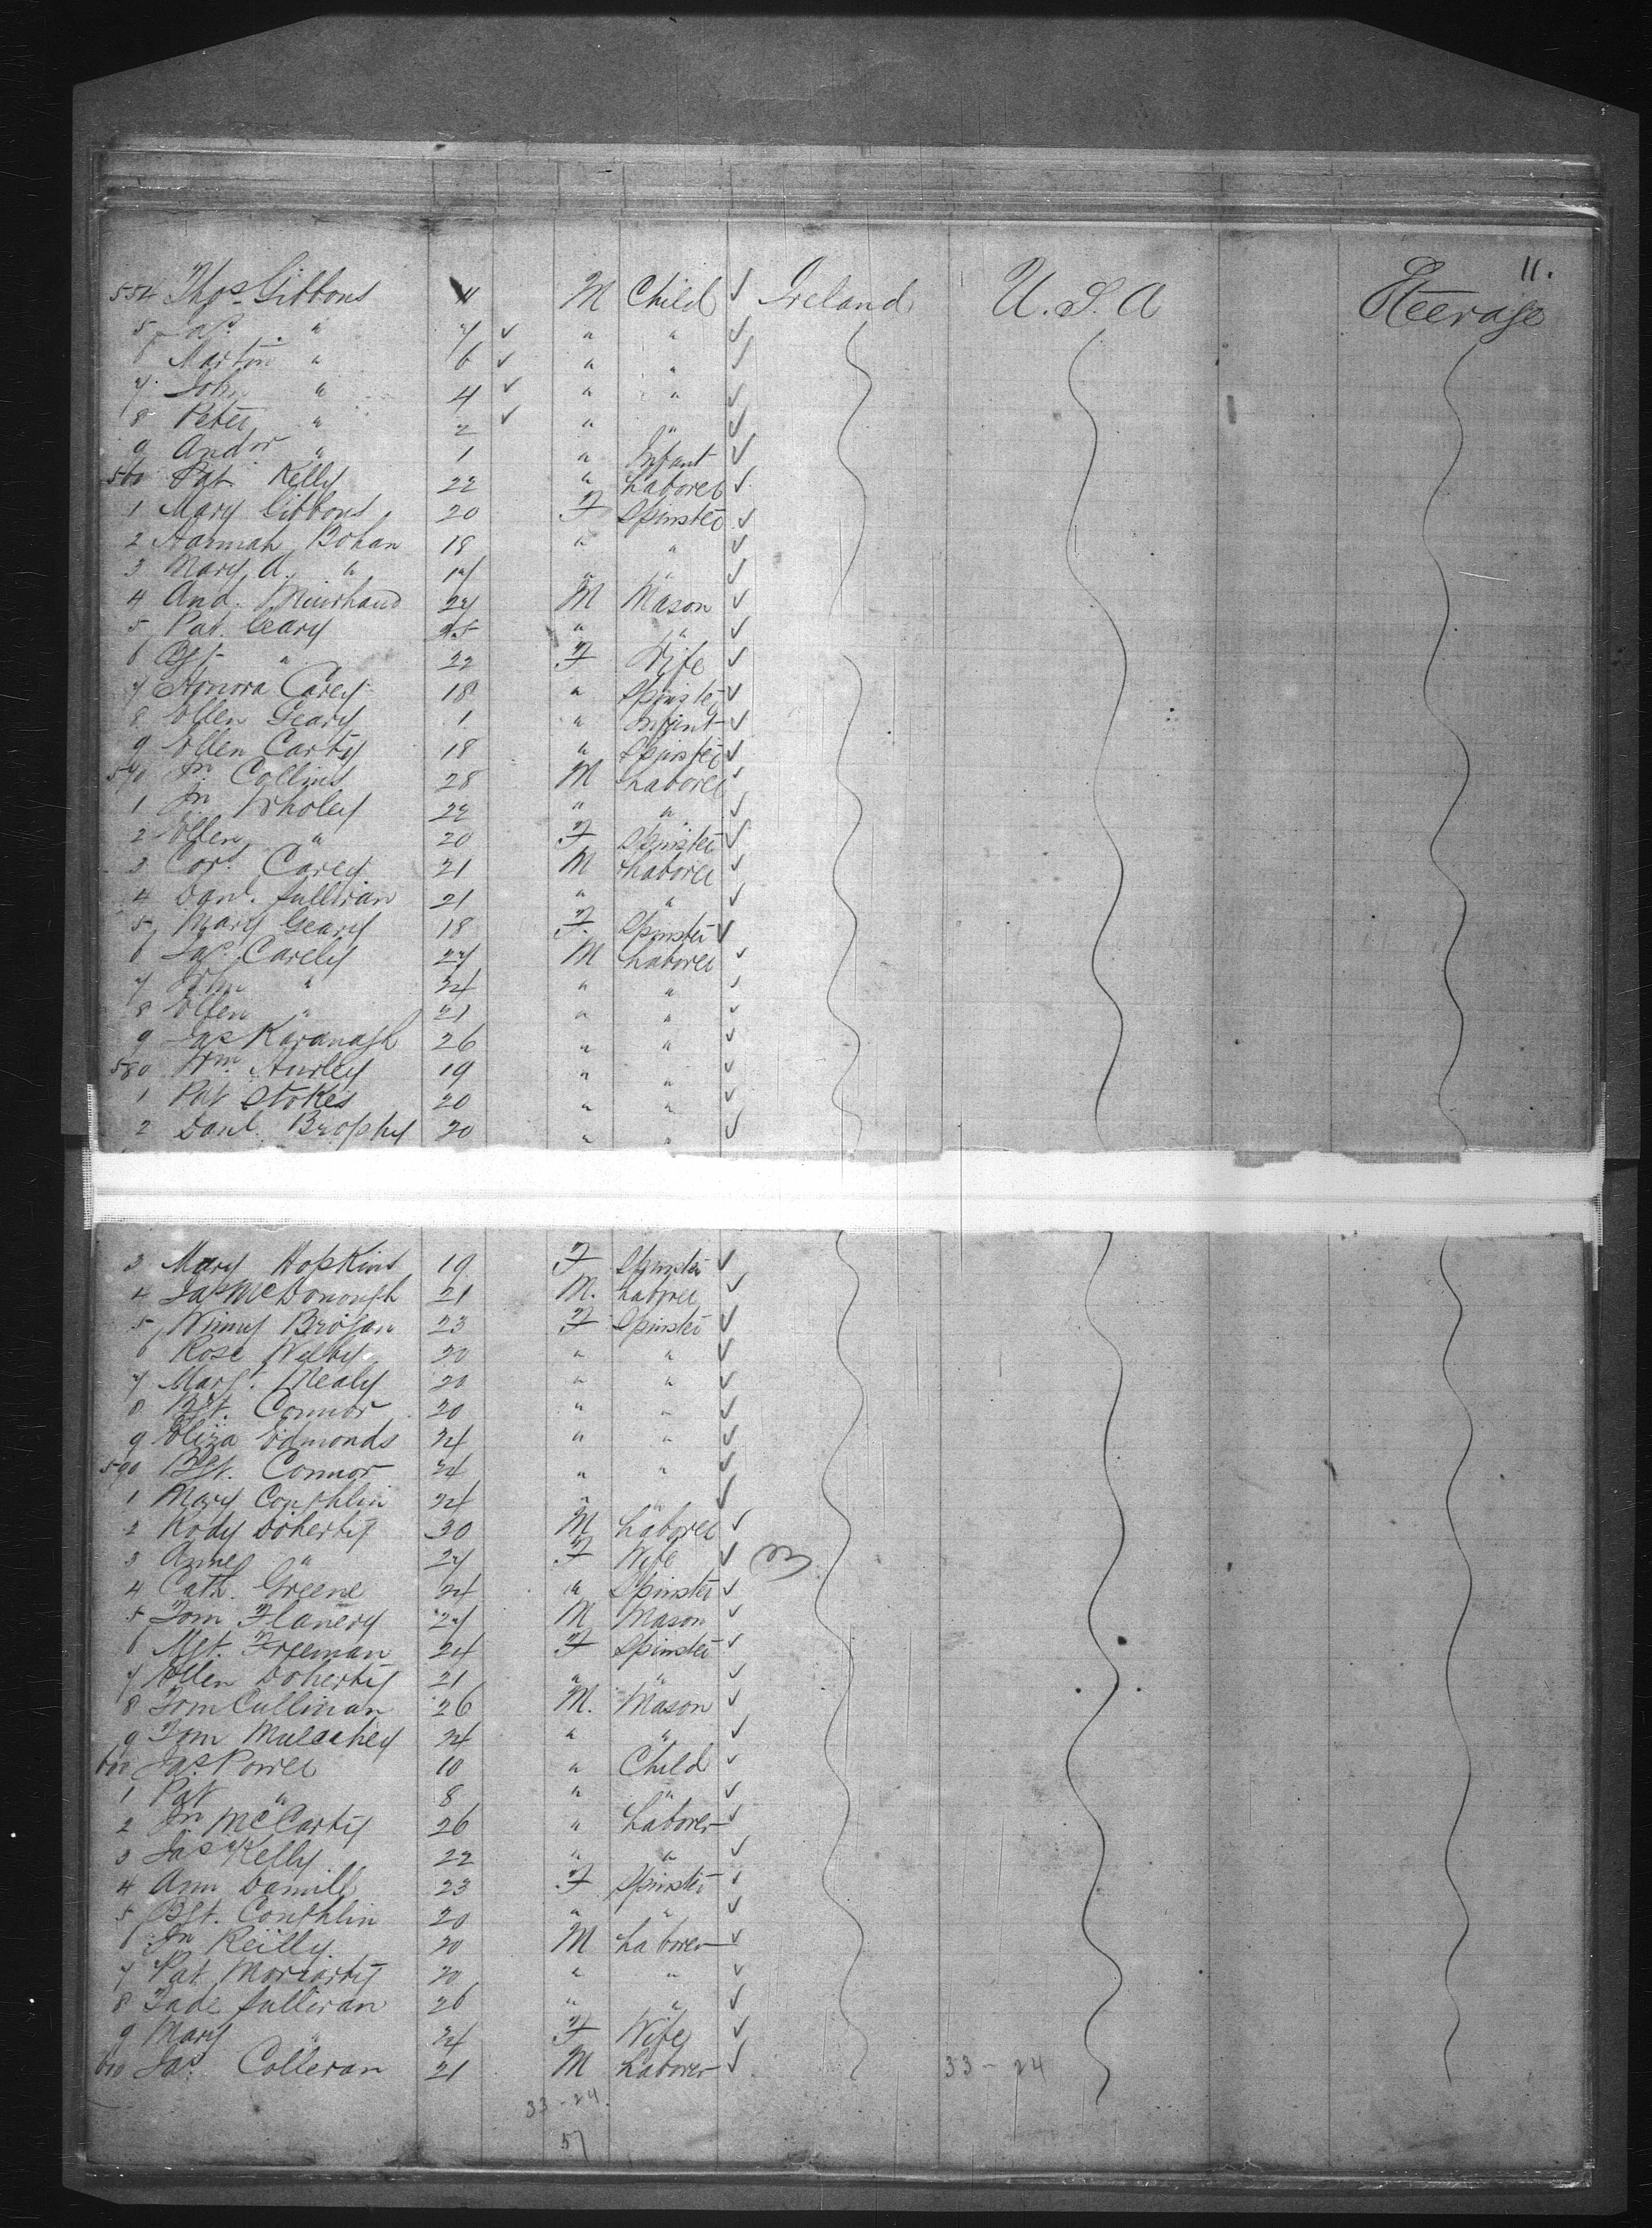 11.
554 Thos Gibbons 11 M Child ✓ Ireland U.S.A Steerage
5 Jas. " 7 ✓ " " ✓
6 Martin " 6 ✓ " " ✓
7 John " 4 ✓ " " ✓
8 Peter " 2 ✓ " " ✓
9 Andw " 1 " Infant ✓
560 Pat Kelly 22 " Laborer ✓
1 Mary Gibbons 20 F Spinster ✓
2 Hannah Bohan 18 " " ✓
3 Mary A. " 17 " " ✓
4 And. 27 M Mason ✓
5 Pat. Geary 25 " " ✓
6 Bgt " 22 F Wife ✓
7 Honora Carey 18 " Spinster ✓
8 Ellen Geary 1 " Infant ✓
9 Ellen Carty 18 " Spinster ✓
570 Jn Collins 28 M Laborer ✓
1 Jn Wholey 22 " " ✓
2 Ellen " 20 F Spinster ✓
3 Cors. Carey 21 M Laborer ✓
4 Danl. Sullivan 21 " " ✓
5 Mary Geary 18 F. Spinster ✓
6 Jas. Carely 27 M Laborer ✓
7 " 24 " " ✓
8 Ellen " 21 " " ✓
9 Jas Kavanagh 26 " " ✓
580 Wm. Hurley 19 " " ✓
1 Pat Stokes 20 " " ✓
2 Danl. Brophy 20 " " ✓
3 Mary Hopkins 19 F Spinster ✓
4 Jas McDonough 21 M. Laborer ✓
5 Winny Brogan 23 F Spinster ✓
6 Rose Welby 20 " " ✓
7 Margt. Mealy 20 " " ✓
8 Bgt. Connor 20 " " ✓
9 Eliza Edmonds 24 " " ✓
590 Bgt. Connor 24 " " ✓
1 Mary Coughlin 24 " " ✓
2 Rody Doherty 30 M Laborer ✓
3 Anne " 27 F Wife ✓
4 Cath. Greene 24 " Spinster ✓
5 Tom Flanery 27 M Mason ✓
6 Mgt. Freeman 24 F Spinster ✓
7 Ellen Doherty 21 " " ✓
8 Tom Cullinan 26 M. Mason ✓
9 Tom Mulcahey 24 " " ✓
600 Jas. Power 10 " Child ✓
1 Pat " 8 " " ✓
2 Jn McCarty 26 " Laborer ✓
3 Jas Kelly 22 " " ✓
4 Ann Damill 23 F Spinster ✓
5 Bgt. Coughlin 20 " " ✓
6 Jn Reilly 20 M Laborer ✓
7 Pat Moriarty 20 " " ✓
8 Tade Sullivan 26 " " ✓
9 Mary " 24 F Wife ✓
610 Jas. Colleran 21 M Laborer ✓ 33-24
33-24.
57